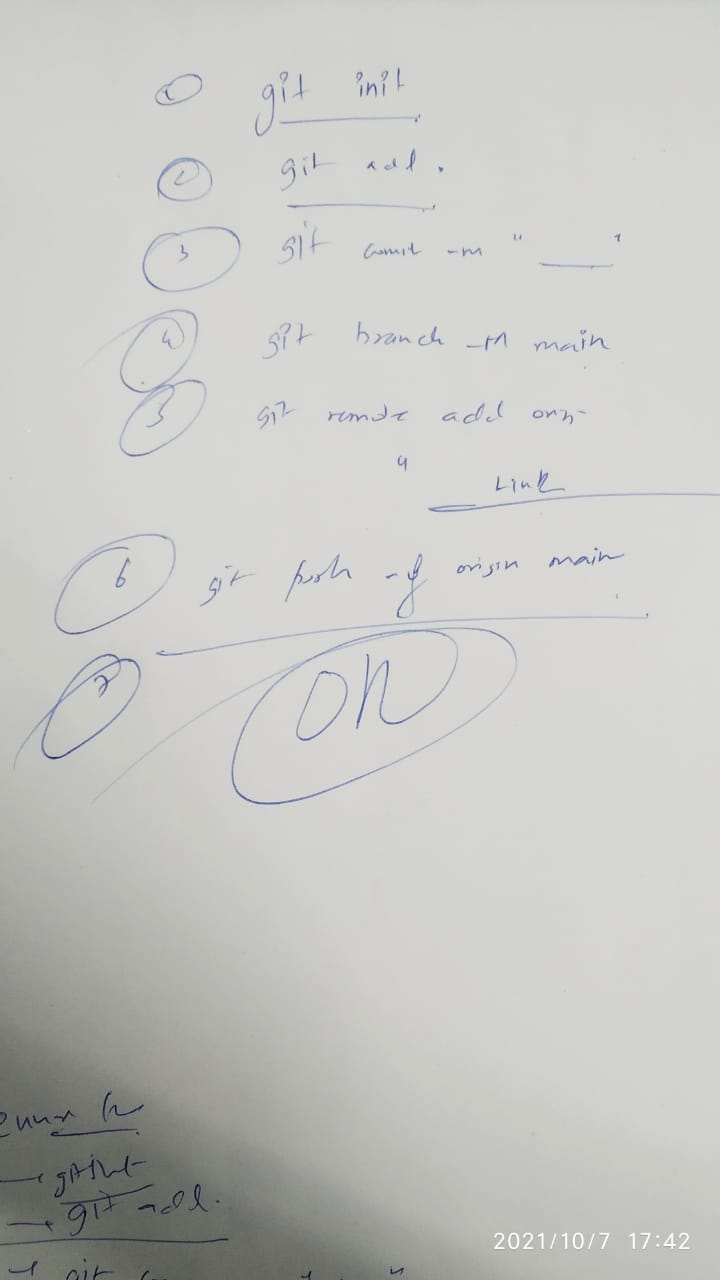 1 git init
2 git add .
3 git comit -m "____"
4 git branch -M main
5 git remote add
" Link
6 git push -f origin main
7 OK
git init
→ git add.
git "
2021/10/7 17:42